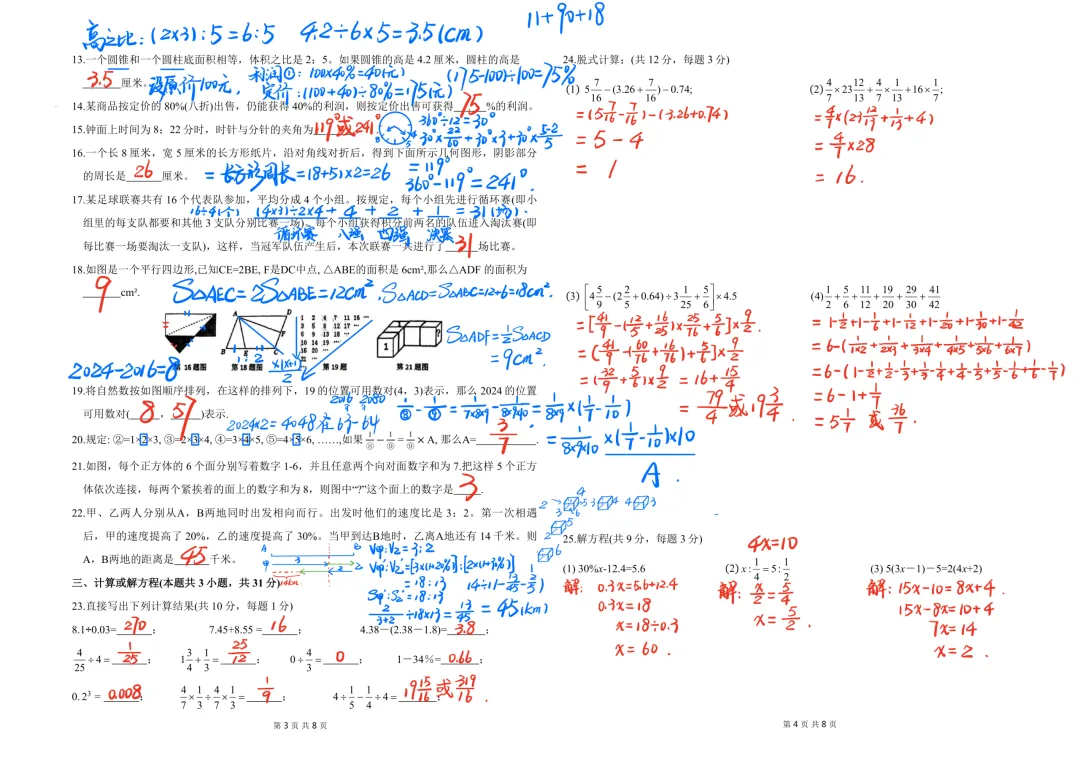 高之比:(2×3):5=6:5 4.2÷6×5=3.5(cm)
11+90+18
13.一个圆锥和一个圆柱底面积相等，体积之比是 2：5。如果圆锥的高是 4.2 厘米，圆柱的高是
3.5 厘米。
设原价100元, 利润①:100×40%=40(元) (175-100)÷100=75%
定价:(100+40)÷80%=175(元)
14.某商品按定价的 80%(八折)出售，仍能获得 40%的利润，则按定价出售可获得 75 %的利润。
15.钟面上时间为 8：22 分时，时针与分针的夹角为 119°或241°
360°÷12=30°
30°×22/60+30°×3+30°×
=119°
360°-119°=241°.
16.一个长 8 厘米，宽 5 厘米的长方形纸片，沿对角线对折后，得到下面所示几何图形，阴影部分
的周长是 26 厘米。 =长方形周长=(8+5)×2=26
17.某足球联赛共有 16 个代表队参加，平均分成 4 个小组。按规定，每个小组先进行循环赛(即小
16÷4(个) (4×3)÷2×4+4+2+1=31(场).
组里的每支队都要和其他 3 支队分别比赛一场)，每个小组获得积分前两名的队伍进入淘汰赛(即
循环赛 八强 四强 决赛
每比赛一场要淘汰一支队)，这样，当冠军队伍产生后，本次联赛一共进行了 31 场比赛。
18.如图是一个平行四边形,已知CE=2BE, F是DC中点, △ABE的面积是 6cm²,那么△ADF 的面积为
9 cm².
S△AEC=2S△ABE=12cm². S△ACD=S△ABC=12+6=18cm².
S△ADF=1/2S△ACD
=9cm².
A D F B E C 1:2
1 2 4 7 11 16 ···
3 5 8 12 17 ···
6 9 13 18 ···
10 14 19 ···
15 20 ···
21 ···
1 ?
第 16 题图 第 18 题图 第 19 题 第 21 题图
2024-2016=8
19.将自然数按如图顺序排列，在这样的排列下，19 的位置可用数对(4，3)表示，那么 2024 的位置
可用数对( 8 ， 57 )表示.
2016 2080
2024×2=4048在63-64
20.规定: ②=1×2×3, ③=2×3×4, ④=3×4×5, ⑤=4×5×6, ……,如果 1/⑧ − 1/⑨ = 1/⑨ × A, 那么A= 3/7 .
1/⑧-1/⑨=1/7×8×9-1/8×9×10=1/8×9×(1/7-1/10)
=1/8×9×10×(1/7-1/10)×10
A.
21.如图，每个正方体的 6 个面分别写着数字 1-6，并且任意两个向对面数字和为 7.把这样 5 个正方
体依次连接，每两个紧挨着的面上的数字和为 8，则图中“?”这个面上的数字是 3 .
22.甲、乙两人分别从A，B两地同时出发相向而行。出发时他们的速度比是 3：2。第一次相遇
后，甲的速度提高了 20%，乙的速度提高了 30%。当甲到达B地时，乙离A地还有 14 千米。则
A，B两地的距离是 45 千米。
V甲:V乙=3:2
V甲:V乙'=[3×(1+20%)]:[2×(1+30%)]
=18:13
S甲':S乙'=18:13
2/3+2÷18×13=13/45
14÷(1-13/45-2/5)
=45(km)
三、计算或解方程(本题共 3 小题，共 31 分)
23.直接写出下列计算结果(共 10 分，每题 1 分)
8.1÷0.03= 270 ； 7.45+8.55 = 16 ； 4.38−(2.38-1.8)= 3.8 ；
4/25÷4= 1/25 ； 1 3/4+1/3= 25/12 ； 0÷4/3= 0 ； 1－34％= 0.66 ；
0.2³ = 0.008 ； 4/7×1/3÷4/7×1/3= 1/9 ； 4÷1/5−1/4÷4= 19 15/16或319/16 ；
第 3 页 共 8 页
24.脱式计算：(共 12 分，每题 3 分)
(1) 5 7/16−(3.26+7/16)−0.74;
=(5 7/16-7/16)-(3.26+0.74)
=5-4
=1
(2) 4/7×23 12/13+4/7×1/13+16×1/7;
=4/7×(23 12/13+1/13+4)
=4/7×28
=16.
(3) [4 5/9−(2 2/5+0.64)÷3 1/25+5/6]×4.5
=[41/9-(12/5+16/25)×25/76+5/6]×9/2.
=(32/9+5/6)×9/2=16+15/4
=79/4或19 3/4
(4) 1/2+5/6+11/12+19/20+29/30+41/42
=1-1/2+1-1/6+1-1/12+1-1/20+1-1/30+1-1/42
=6-(1/1×2+1/2×3+1/3×4+1/4×5+1/5×6+1/6×7)
=6-(1-1/2+1/2-1/3+1/3-1/4+1/4-1/5+1/5-1/6+1/6-1/7)
=6-1+1/7
=5 1/7 或 36/7.
25.解方程(共 9 分，每题 3 分)
(1) 30%x-12.4=5.6
解: 0.3x=5.6+12.4
0.3x=18
x=18÷0.3
x=60.
4x=10
(2) x:1/4=5:1/2
解: x/2=5/4
x=5/2.
(3) 5(3x－1)－5=2(4x+2)
解: 15x-10=8x+4
15x-8x=10+4
7x=14
x=2.
第 4 页 共 8 页